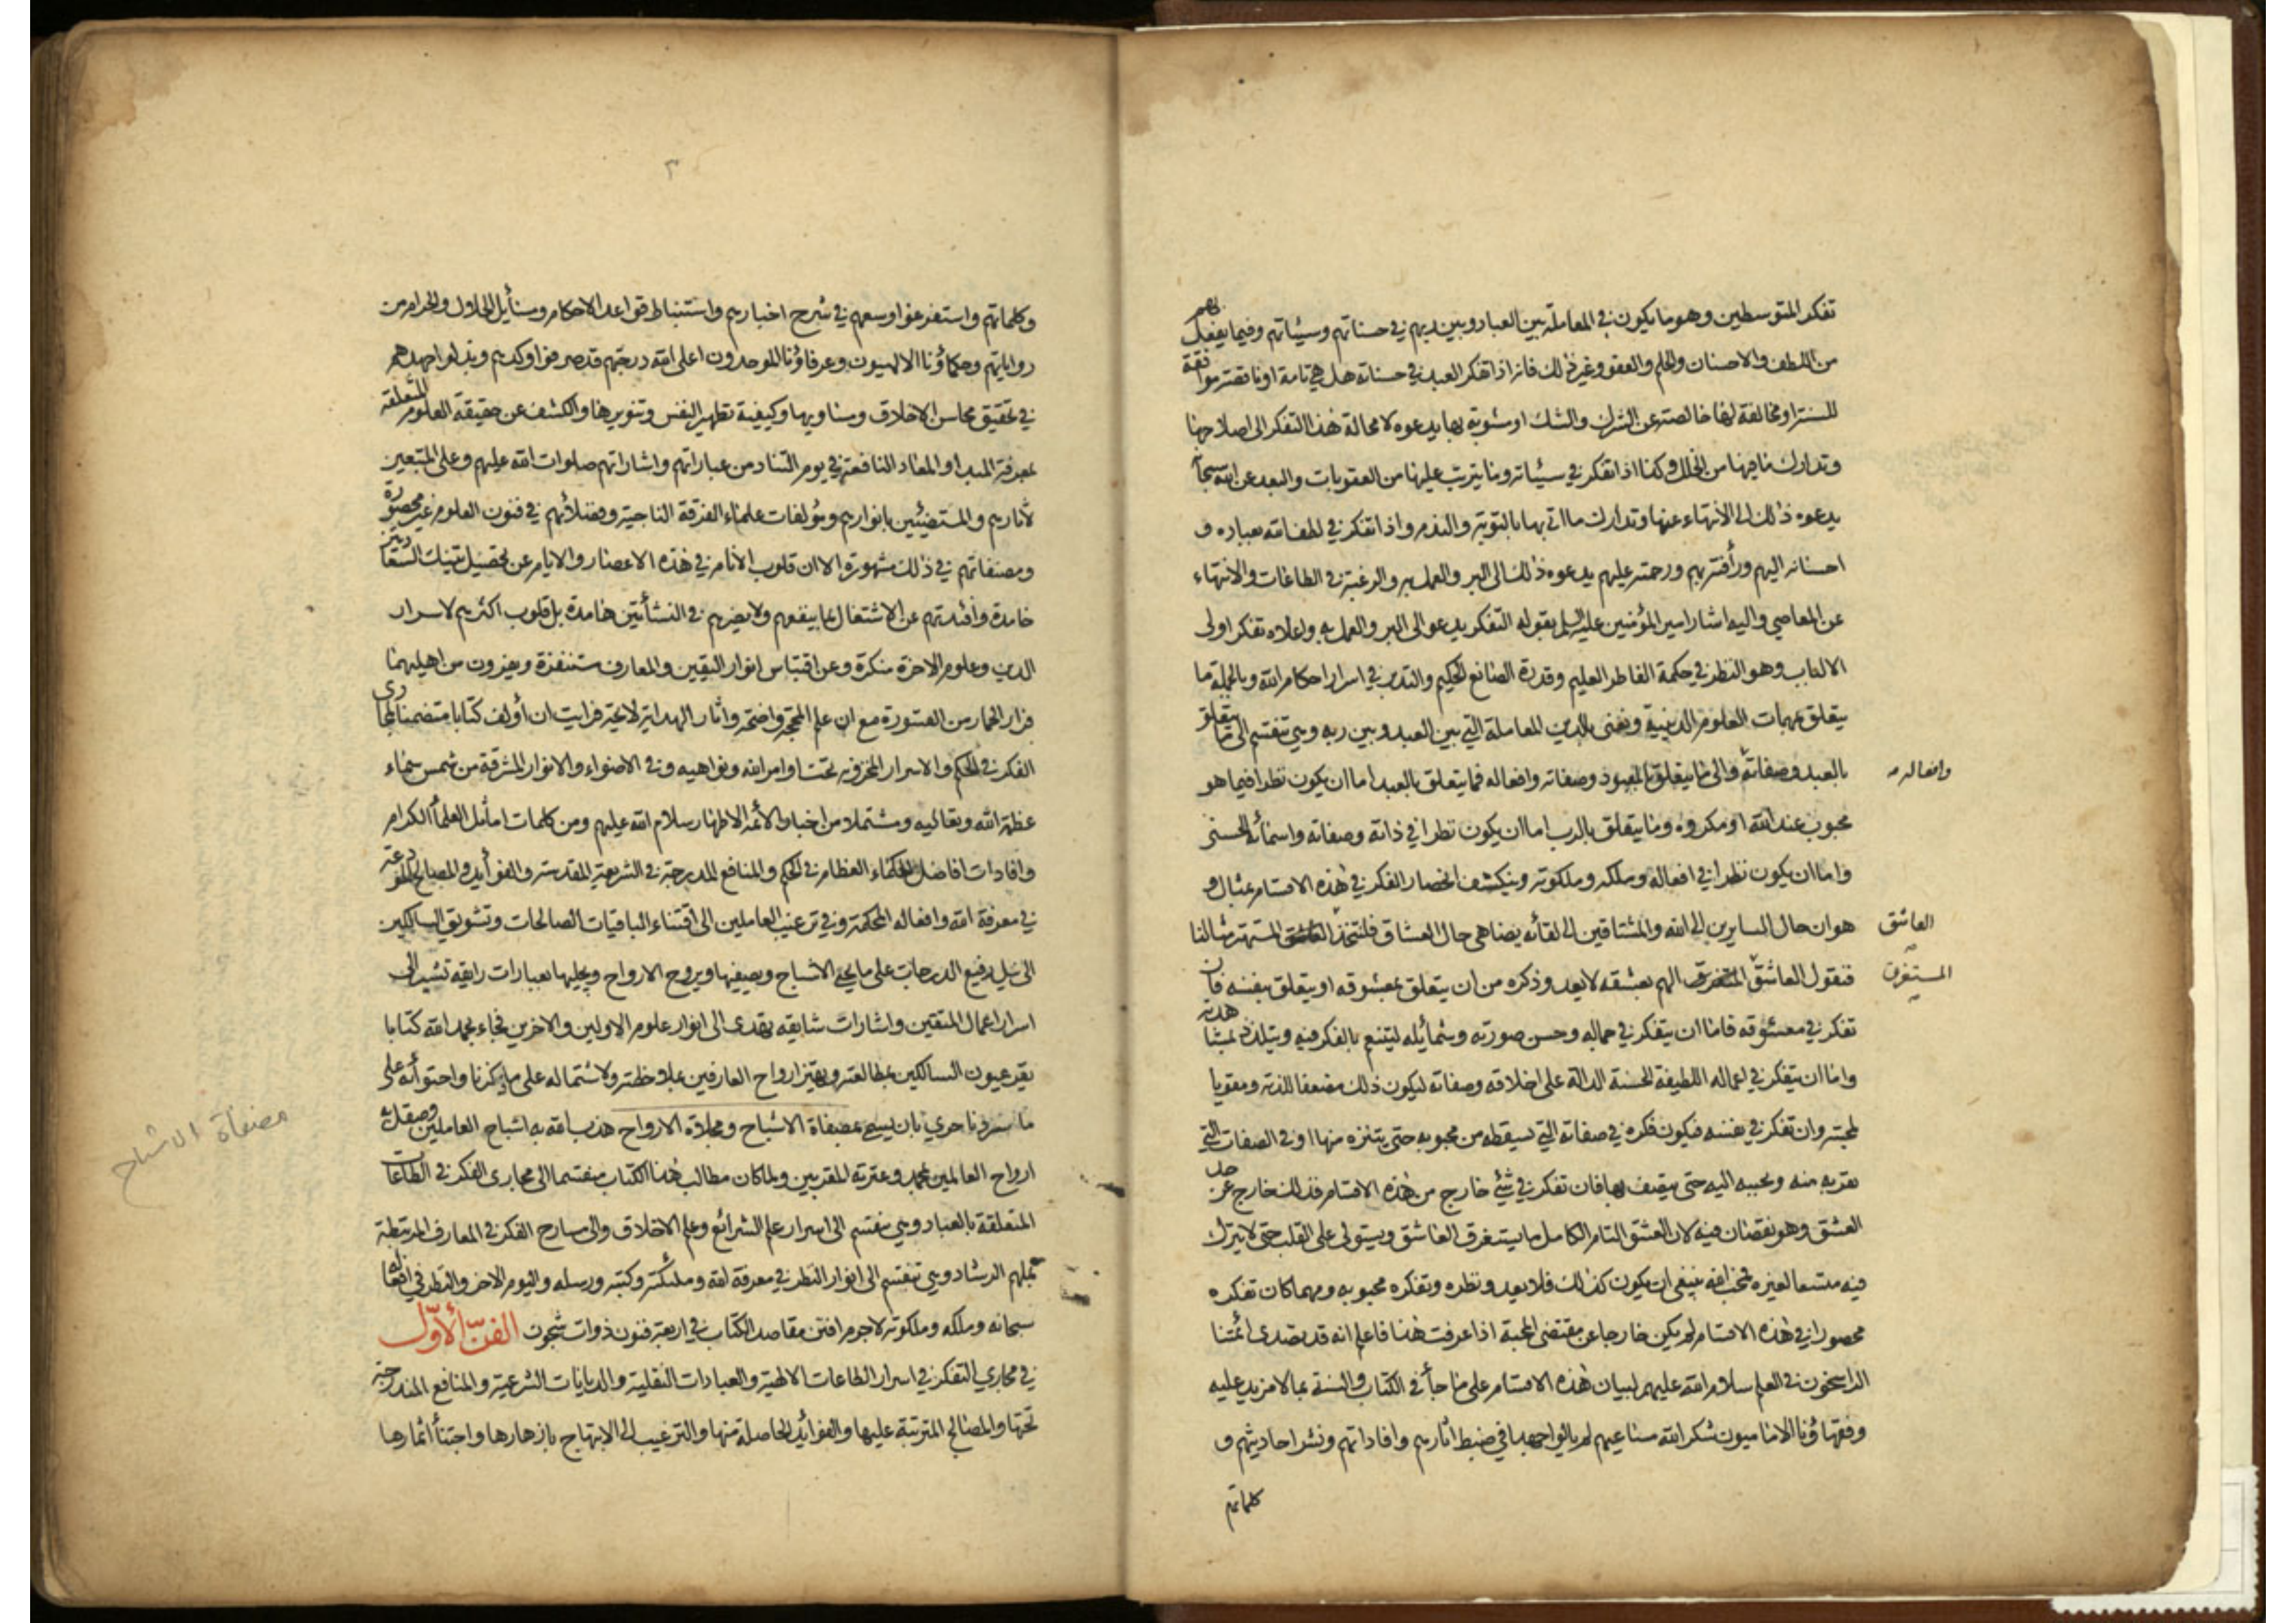 تفكر المتوسطين وهو ما يكون في المعاملة بين العباد وبين ربهم في حسناتهم وسيئاتهم وفيما يفعل بهم
من اللطف والاحسان والحلم والعفو وغير ذلك فانه اذا تفكر العبد في حسناته هل هي تامة او ناقصة موافقة
للسنة او مخالفة لها خالصة عن الشرك والشك او مشوبة بها يدعوه لا محالة هذا التفكر الى اصلاحها
وتدارك ما فيها من الخلل وكذا اذا تفكر في سيئاته وما يترتب عليها من العقوبات والبعد عن الله سبحانه
يدعوه ذلك الى الانتهاء عنها وتدارك ما اتى بها بالتوبة والندم واذا تفكر في لطف الله بعباده و
احسانه اليهم ورأفته بهم ورحمته عليهم يدعوه ذلك الى البر والعمل به والرغبة في الطاعات والانتهاء
عن المعاصي واليه اشار امير المؤمنين عليه السلم بقوله التفكر يدعو الى البر والعمل به واعلاه تفكر اولى
الالباب وهو النظر في حكمة الفاطر العليم وقدرة الصانع الحكيم والتدبر في اسرار احكام الله وبالجملة ما
يتعلق بمهمات العلوم الدينية ونعنى بالدين المعاملة التي بين العبد وبين ربه وهي تنقسم الى ما يتعلق
بالعبد وصفاته والى ما يتعلق بالمعبود وصفاته وافعاله فما يتعلق بالعبد اما ان يكون نظرا فيما هو
وافعاله
محبوب عند الله او مكروه وما يتعلق بالرب اما ان يكون نظرا في ذاته وصفاته واسمائه الحسنى
واما ان يكون نظرا في افعاله وملكه وملكوته وينكشف انحصار الفكر في هذه الاقسام بمثال و
هو ان حال السايرين الى الله والمشتاقين الى لقائه يضاهي حال العشاق فلنتخذ المستهتر مثالنا
العاشق
فنقول العاشق الهم بعشقه لا يعد وذكره من ان يتعلق بمعشوقه او يتعلق بنفسه فان
المستغرق
تفكر في معشوقه فاما ان يتفكر في جماله وحسن صورته وشمائله ليتنعم بالفكر فيه ويتلذذ بمشاهدته
واما ان يتفكر في افعاله اللطيفة الحسنة الدالة على اخلاقه وصفاته ليكون ذلك مضعفا للذته ومقويا
لمحبته وان تفكر في نفسه فيكون فكره في صفاته التي تسقطه من محبوبه حتى يتنزه منها او في الصفات التي
تقربه منه وتحببه اليه حتى يتصف بها فان تفكر في شئ خارج من هذه الاقسام فذلك خارج عن حد
العشق وهو نقصان فيه لان العشق التام الكامل ما يستغرق العاشق ويستولى على القلب حتى لا يترك
فيه متسعا لغيره فمحب الله ينبغى ان يكون كذلك فلا يعد ونظره وتفكره محبوبه ومهما كان تفكره
محصورا في هذه الاقسام لم يكن خارجا عن مقتضى المحبة اذا عرفت هذا فاعلم انه قد تصدى ائمتنا
الراسخون في العلم سلام الله عليهم لبيان هذه الاقسام على ما جاء في الكتاب والسنة بما لا مزيد عليه
وفقهاؤنا الاماميون شكر الله مساعيهم لم يالوا جهدا في ضبط اثارهم وافاداتهم ونشر احاديثهم و
كلماتهم
٣
وكلماتهم واستفرغوا وسعهم في شرح اخبارهم واستنباط قواعد الاحكام ومسائل الحلال والحرام من
رواياتهم وحكماؤنا الالهيون وعرفاؤنا الموحدون اعلى الله درجتهم قد صرفوا وكدهم وبذلوا جهدهم
في تحقيق محاسن الاخلاق ومساويها وكيفية تطهير النفس وتنويرها والكشف عن حقيقة العلوم المتعلقة
بمعرفة المبدا والمعاد النافعة في يوم التناد من عباراتهم واشاراتهم صلوات الله عليهم وعلى المتبعين
لآثارهم والمستضيئين بانوارهم ومؤلفات علماء الفرقة الناجية وفضلائهم في فنون العلوم غير محصورة
ومصنفاتهم في ذلك مشهورة الا ان قلوب الانام في هذه الاعصار والايام عن تحصيل تينك السعادتين
خامدة وافئدتهم عن الاشتغال بما ينفعهم ولا يضرهم في النشأتين هامدة بل قلوب اكثرهم لاسرار
الدين وعلوم الاخرة منكرة وعن اقتباس انوار اليقين والمعارف مستنفرة ويفرون من اهليهما
فرار الحمار من القسورة مع ان علم المحجة واضحة واثار الهداية لائحة فرايت ان أولف كتابا متضمنا لمجارى
الفكر في الحكم والاسرار المخزونة تحت اوامر الله ونواهيه وفي الاضواء والانوار المشرقة من شمس سماء
عظمة الله وتعاليه ومشتملا من اخبار الأئمة الاطهار سلام الله عليهم ومن كلمات اماثل العلمأ الكرام
وافادات افاضل الحكماء العظام في الحكم والمنافع المدرجة في الشريعة المقدسة والفوائد والمصالح المودعة
في معرفة الله وافعاله المحكمة وفي ترغيب العاملين الى اقتناء الباقيات الصالحات وتشويق السالكين
الى نيل رفيع الدرجات على ما يحيى الاشباح ويصفيها ويروح الارواح ويجليها بعبارات رايقة تشير الى
اسرار اعمال المتقين واشارات شايقه تهدى الى انوار علوم الاولين والاخرين فجاء بحمد الله كتابا
تقر عيون السالكين بمطالعته وتهتز ارواح العارفين بملاحظته ولاشتماله على ما ذكرنا واحتوائه على
ما سردنا حري بان يسمى بمصفاة الاشباح ومجلاة الارواح هذب الله به اشباح العاملين وصقل به
ارواح العالمين بمحمد وعترته المقربين ولما كان مطالب هذا الكتاب منقسما الى مجارى الفكر في الطاعات
المتعلقة بالعباد وهي تنقسم الى اسرار علم الشرائع وعلم الاخلاق والى مسارح الفكر في المعارف المرتبطة
الرشاد وهي تنقسم الى انوار النظر في معرفة الله وملئكته وكتبه ورسله واليوم الاخر والنظر في افعاله
سبحانه وملكه وملكوته لاجرم افتن مقاصد الكتاب في اربعة فنون ذوات شجون الفنّ الأوّل
في مجاري التفكر في اسرار الطاعات الالهية والعبادات النقلية والديانات الشرعية والمنافع المندرجة
تحتها والمصالح المترتبة عليها والفوايد الحاصلة منها والترغيب الى الابتهاج بازهارها واجتنأ اثمارها
مصفاة الاشباح